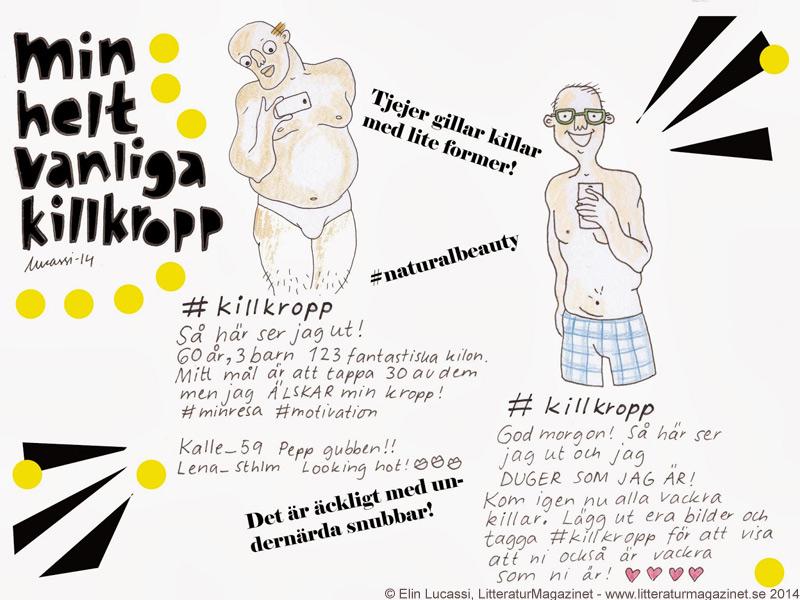 min
helt
vanliga
killkropp
Lucassi-14
Tjejer gillar killar
med lite former!
#naturalbeauty
# killkropp
Så här ser jag ut!
60 år, 3 barn 123 fantastiska kilon.
Mitt mål är att tappa 30 av dem
men jag ÄLSKAR min kropp!
#minresa #motivation
Kalle_59 Pepp gubben!!
Lena_Sthlm Looking hot!
Det är äckligt med un-
dernärda snubbar!
# killkropp
God morgon! Så här ser
jag ut och jag
DUGER SOM JAG ÄR!
Kom igen nu alla vackra
killar. Lägg ut era bilder och
tagga #killkropp för att visa
att ni också är vackra
som ni är!
© Elin Lucassi, LitteraturMagazinet - www.litteraturmagazinet.se 2014